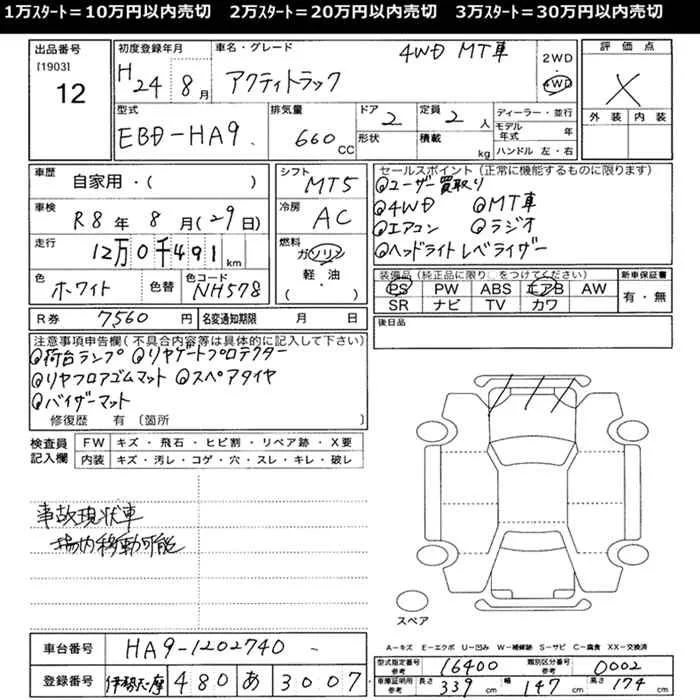 1万ｽﾀｰﾄ＝10万円以内売切　2万ｽﾀｰﾄ＝20万円以内売切　3万ｽﾀｰﾄ＝30万円以内売切
出品番号
[1903]
12
初度登録年月
H24年8月
車名・グレード
4WD MT車
アクティトラック
2WD
4WD
評価点
X
外装 内装
型式
EBD-HA9
排気量
660 CC
ドア 2
形状
定員 2 人
積載 kg
ディーラー・並行
モデル年式 年
ハンドル 左・右
車歴
自家用・( )
車検
R8年8月(29日)
走行
12万0千491km
色
ホワイト
色替
色コード
NH578
シフト
MT5
冷房
AC
燃料
ガソリン
軽・油
( )
セールスポイント(正常に機能するものに限ります)
◎ユーザー買取り
◎4WD ◎MT車
◎エアコン ◎ラジオ
◎ヘッドライトレベライザー
装備品(純正品に限り○をつけてください)
PS PW ABS エアB AW
SR ナビ TV カワ
新車保証書
有・無
R券 7560円
名変通知期限 月 日
後日品
注意事項申告欄(不具合内容等は具体的に記入して下さい)
◎荷台ランプ ◎リヤゲートプロテクター
◎リヤフロアゴムマット ◎スペアタイヤ
◎バイザーマット
修復歴 有 (箇所 )
検査員
記入欄
FW キズ・飛石・ヒビ割・リペア跡・X要
内装 キズ・汚レ・コゲ・穴・スレ・キレ・破レ
事故現状車
場内移動可能
スペア
A－キズ E－エクボ U－凹み W－補修跡 S－サビ C－腐食 XX－交換済
車台番号
HA9-1202740
登録番号
伊勢志摩 480 あ 3007
型式指定番号 参考 16400
類別区分番号 参考 0002
車庫証明用 参考
長さ 339 cm 幅 147 cm 高さ 174 cm